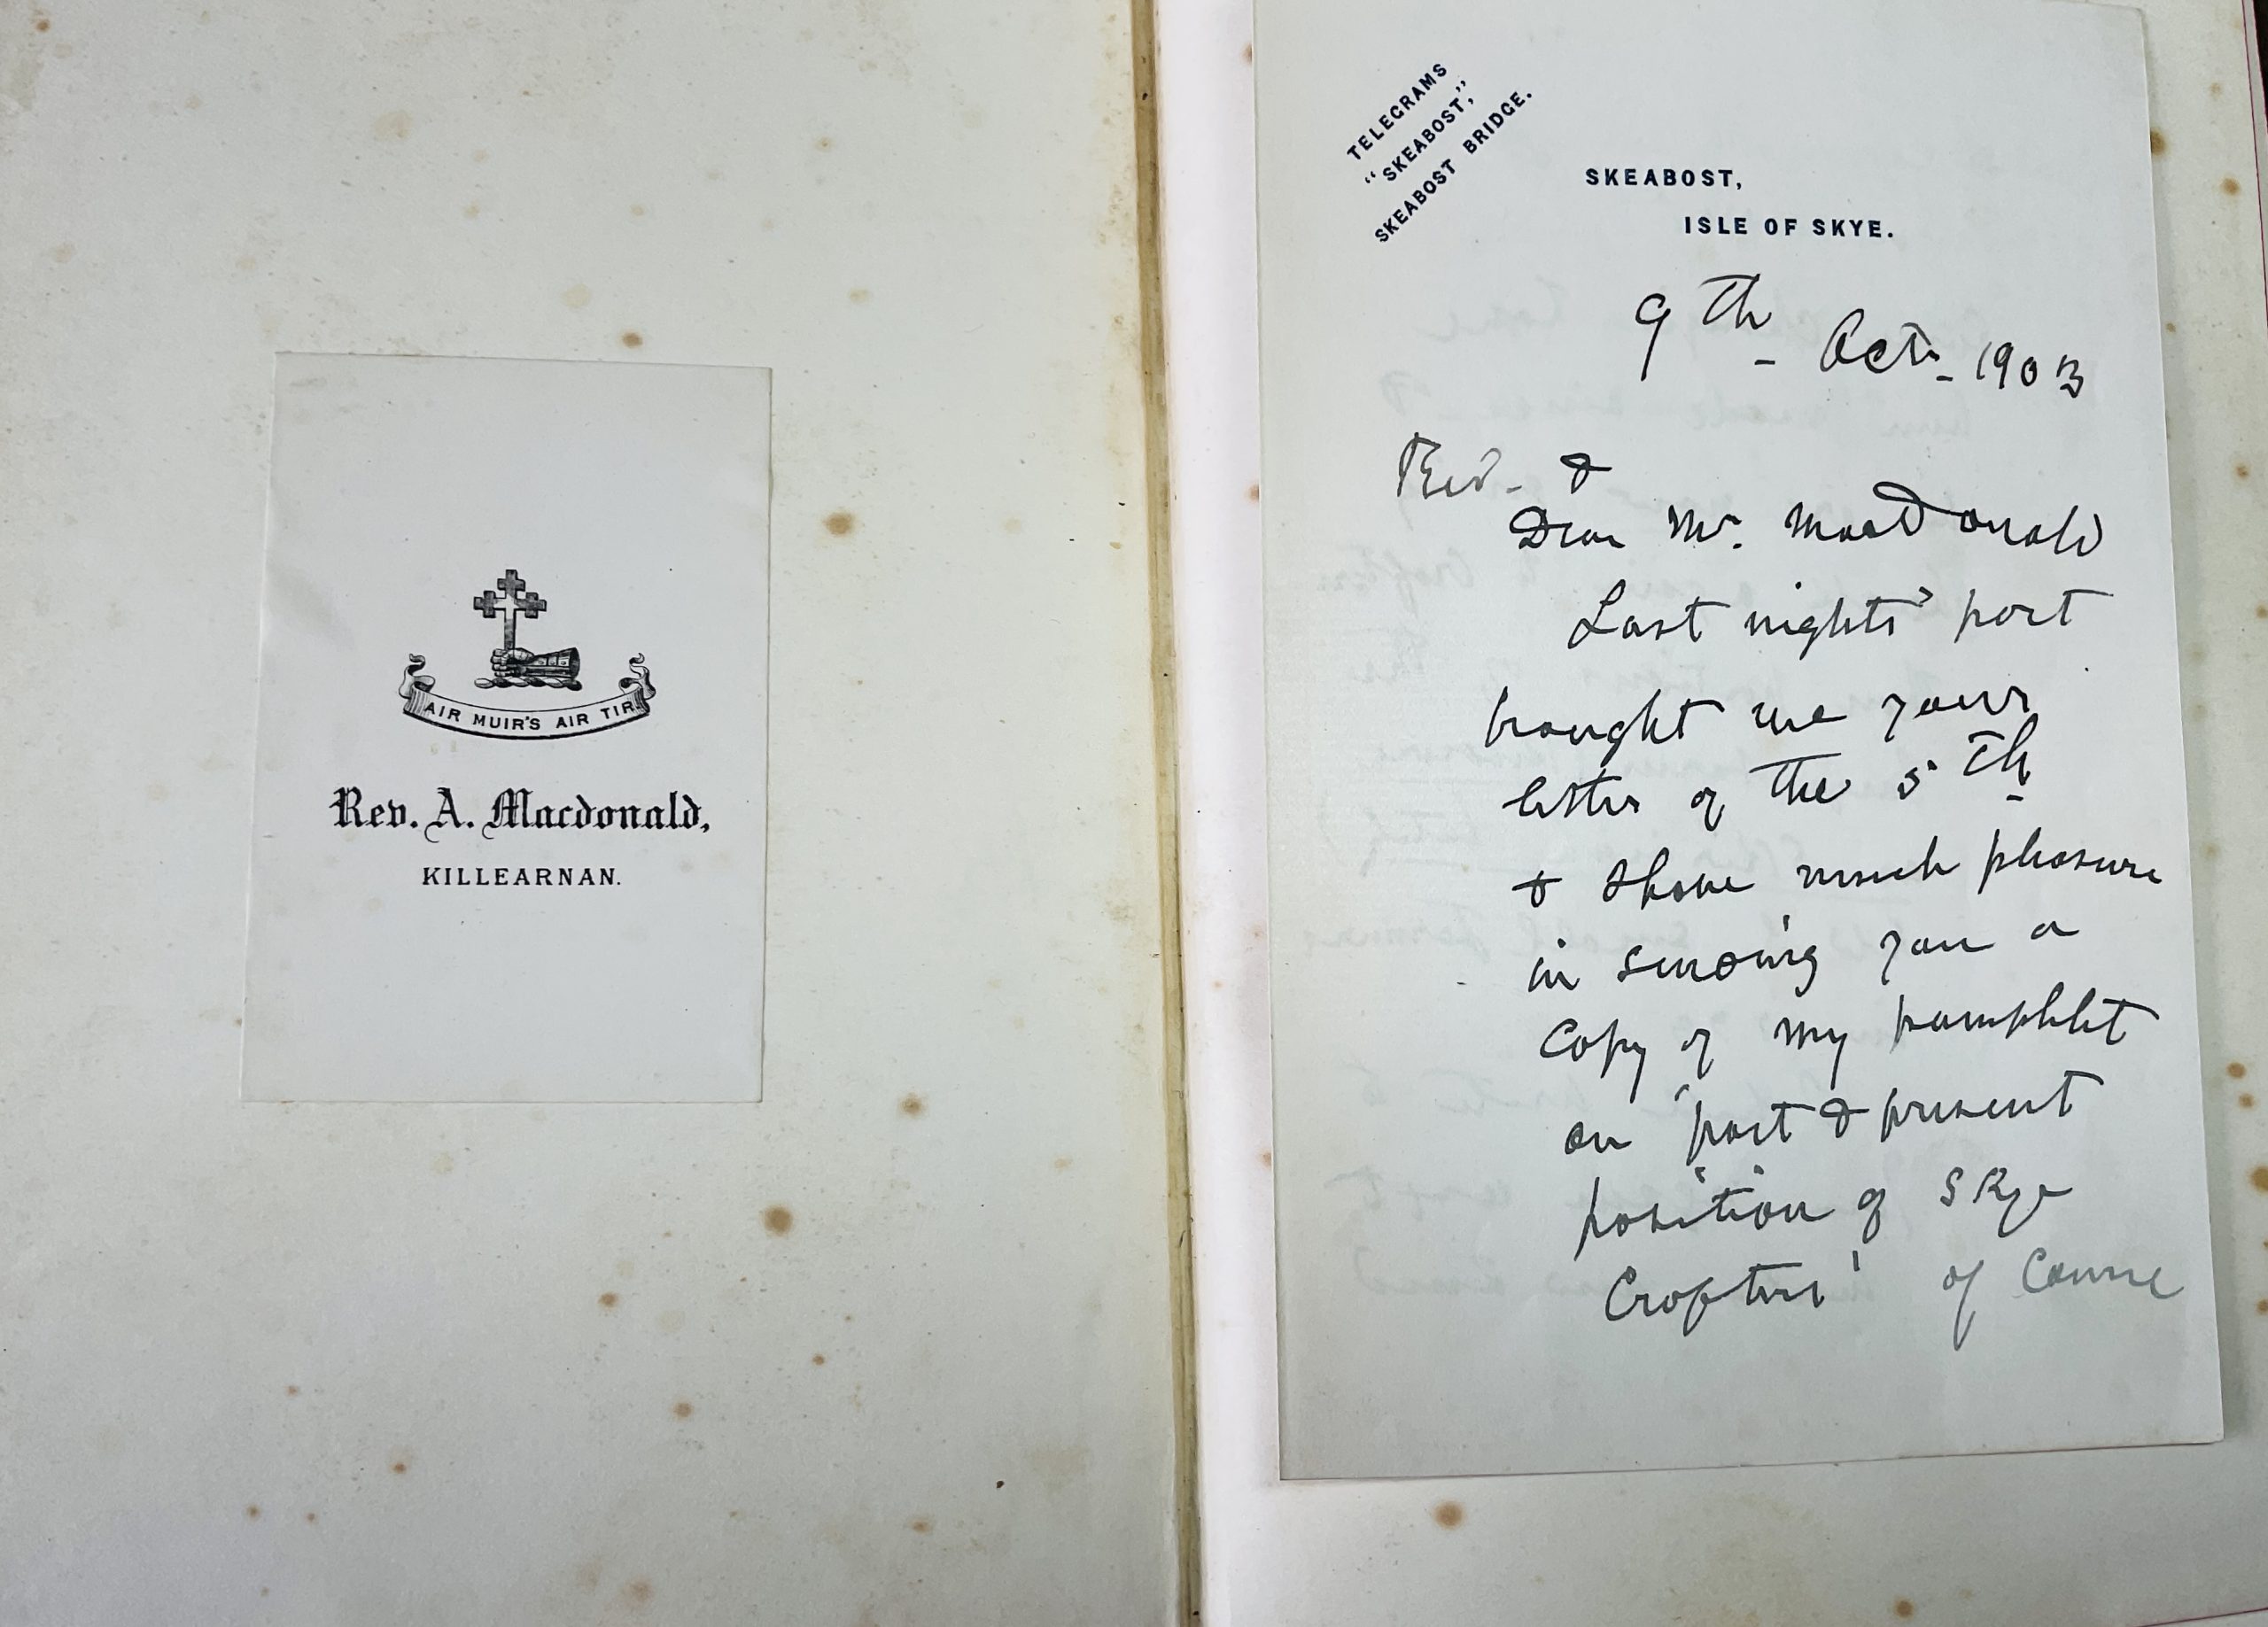 AIR MUIR'S AIR TIR
Rev. A. Macdonald,
KILLEARNAN.
TELEGRAMS
"SKEABOST,"
SKEABOST BRIDGE.
SKEABOST,
ISLE OF SKYE.
9th Oct. 1903
Revd. &
Dear Mr. MacDonald
Last nights' post
brought me your
letter of the 5th
& I have much pleasure
in sending you a
Copy of my pamphlet
on "past & present
position of Skye
Crofters' of Course